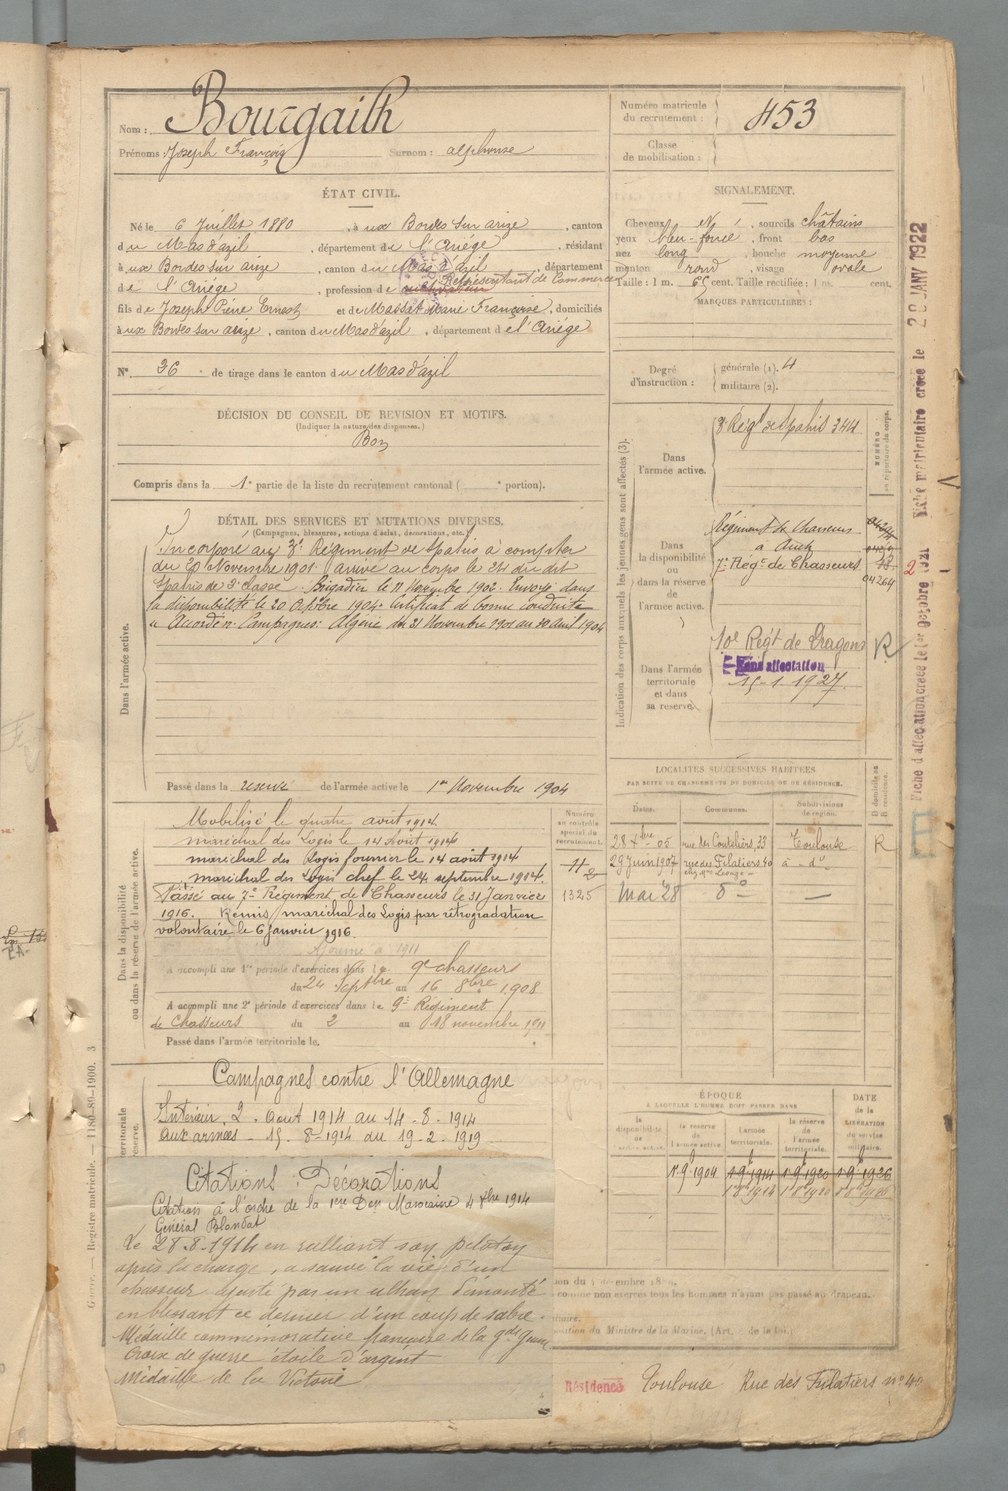 Nom : Bourgailh
Prénoms : Joseph François Surnom : alphonse
Numéro matricule du recrutement : 453
Classe de mobilisation :
ÉTAT CIVIL.
Né le 6 Juillet 1880, à ux Bordes sur arize, canton
du Mas d'azil, département de l'Ariège, résidant
à ux Bordes sur arize, canton du Mas d'azil, département
de l'Ariège, profession de Représentant de Commerce
fils de Joseph Pierre Ernest et de Massat Marie Françoise, domiciliés
à ux Bordes sur arize, canton du Mas d'azil, département de l'Ariège
N° 36 de tirage dans le canton du Mas d'azil
SIGNALEMENT.
Cheveux , sourcils châtains
yeux bleu-foncé, front bas
nez long, bouche moyenne
menton rond, visage ovale
Taille : 1 m. 65 cent. Taille rectifiée : 1 m. cent.
MARQUES PARTICULIÈRES :
Degré d'instruction : générale (1). 4
militaire (2).
DÉCISION DU CONSEIL DE REVISION ET MOTIFS.
(Indiquer la nature des dispenses.)
Bon
Compris dans la 1e partie de la liste du recrutement cantonal ( e portion).
DÉTAIL DES SERVICES ET MUTATIONS DIVERSES.
(Campagnes, blessures, actions d'éclat, décorations, etc.)
Dans l'armée active.
Incorporé au 3e Régiment de Spahis à compter
du 20 Novembre 1901 arrivé au corps le 21 du dit
Spahis de 2e classe. Brigadier le 11 Novembre 1902. Envoyé dans
la disponibilité le 20 Octobre 1904. Certificat de bonne conduite
" Accordé ". Campagnes : Algérie du 21 Novembre 1901 au 20 Avril 1904
Passé dans la réserve de l'armée active le 1er Novembre 1904
Indication des corps auxquels les jeunes gens sont affectés (3).
NUMÉRO au répertoire du corps.
Dans l'armée active.
3e Régt de Spahis 344
Dans la disponibilité ou dans la réserve de l'armée active.
Régiment de Chasseurs
à Auch
7e Régt de Chasseurs
04264
Dans l'armée territoriale et dans sa réserve.
10e Régt de Dragons R
Sans affectation
15-1-1927.
Fiche d'affectation créée le 1er octobre 1921
Fiche matriculaire créée le 20 JANV 1922
Dans la disponibilité ou dans la réserve de l'armée active.
Mobilisé le quatre août 1914.
maréchal des Logis le 14 Août 1914
maréchal des Logis fourrier le 14 août 1914
maréchal des Logis chef le 24 septembre 1914.
Passé au 7e Régiment de Chasseurs le 31 Janvier
1916. Remis maréchal des Logis par rétrogradation
volontaire le 6 janvier 1916.
Ajourné à 1911
A accompli une 1re période d'exercices dans le 9e chasseurs
du 24 Septbre au 16 8bre 1908
A accompli une 2e période d'exercices dans le 9e Régiment
de Chasseurs du 2 au 18 novembre 1911
Passé dans l'armée territoriale le.
Numéro au contrôle spécial du recrutement.
1325
LOCALITÉS SUCCESSIVES HABITÉES
PAR SUITE DE CHANGEMENTS DE DOMICILE OU DE RÉSIDENCE.
Dates. Communes. Subdivisions de région. D domicile ou R résidence.
28 Xbre 05 rue des Couteliers, 33 Toulouse R
29 Juin 1907 rue des Filatiers 40 à - d°
Mai 28 d° —
ÉPOQUE
À LAQUELLE L'HOMME DOIT PASSER DANS
la disponibilité de l'armée active. la réserve de l'armée active. l'armée territoriale. la réserve de l'armée territoriale. DATE de la LIBÉRATION du service militaire.
1 9 1904 1 9 1914 1 9 1920 1 9 1926
Campagnes contre l'Allemagne
Intérieur 2. Aout 1914 au 14-8-1914
aux armées - 15-8-1914 au 19-2-1919
Citations : Décorations
Citation à l'ordre de la 1re Don Marocaine 4 Xbre 1914
Général Blondat
Le 28.8.1914 en ralliant son peloton
après la charge, a sauvé la vie d'un
chasseur ajusté par un uhlan démonté
en blessant ce dernier d'un coup de sabre.
Médaille commémorative française de la gde Guerre
Croix de guerre étoile d'argent
Médaille de la Victoire
comme non exercés tous les hommes n'ayant pas passé au drapeau.
du Ministre de la Marine. (Art. de la loi.)
Résidence Toulouse Rue des Filatiers n° 40
Guerre. — Registre matricule. — 1180-80-1900. 3